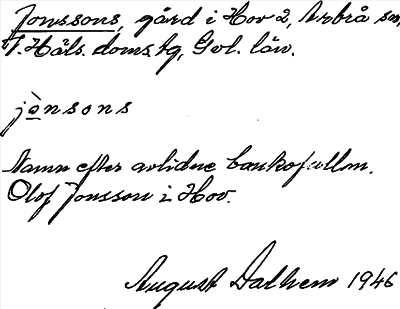 Jonssons, gård i Hov 2, Arbrå sn,
V. Häls. doms.hg, Gvl. län.
jò̱nsons
Namn efter avlidne bankofullm.
Olof Jonsson i Hov.
August Dalhem 1946